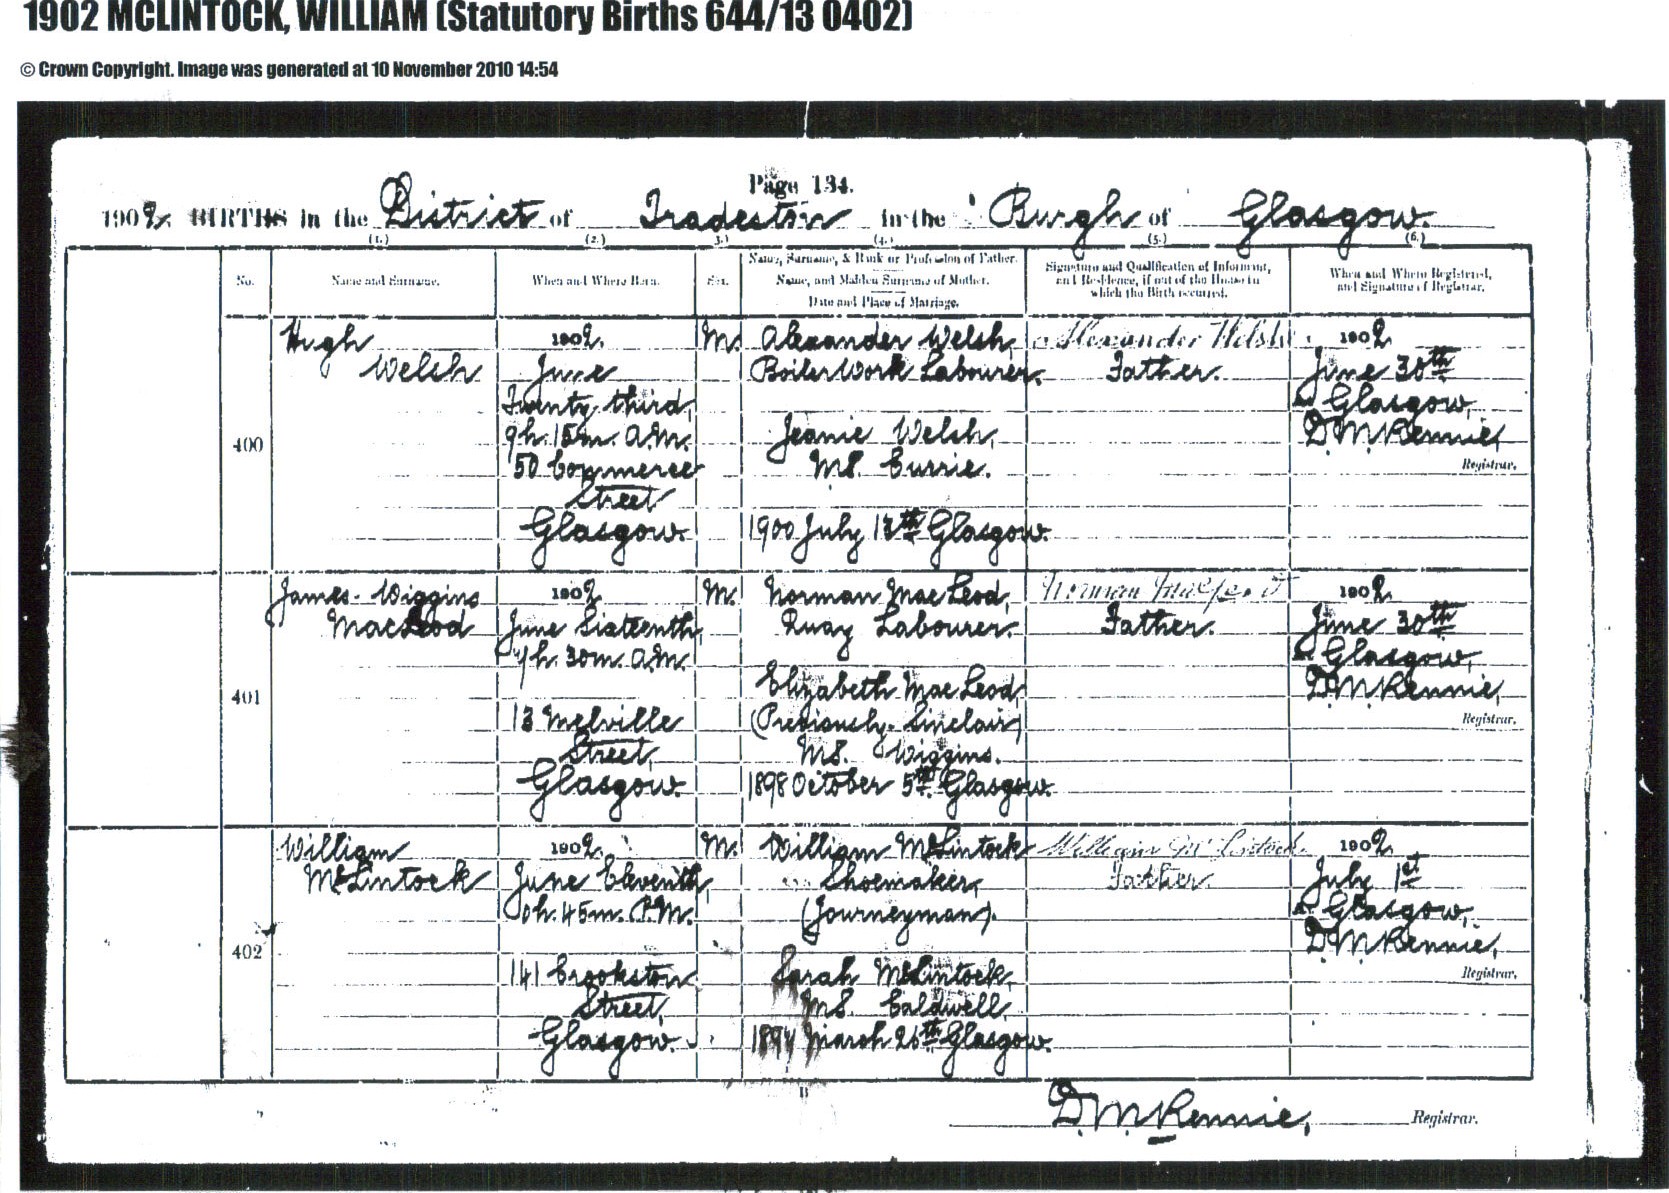 1902 MCLINTOCK, WILLIAM (Statutory Births 644/13 0402)
© Crown Copyright. Image was generated at 10 November 2010 14:54
Page 134.
1902 BIRTHS in the District of Tradeston in the Burgh of Glasgow.
(1.) (2.) 3.) (4.) (5.) (6.)
No.
Name and Surname.
When and Where Born.
Sex.
Name, Surname, & Rank or Profession of Father.
Name, and Maiden Surname of Mother.
Date and Place of Marriage.
Signature and Qualification of Informant,
and Residence, if out of the House in
which the Birth occurred.
When and Where Registered,
and Signature of Registrar.
400
Hugh
Welsh
1902
June
Twenty third,
9h. 15m. A.M.
50 Commerce
Street
Glasgow.
M.
Alexander Welsh,
Boiler Work Labourer.
Jeanie Welsh,
M.S. Currie.
1900 July 13th Glasgow.
Alexander Welsh
Father.
1902
June 30th
Glasgow,
D. McKennie,
Registrar.
401
James Wiggins
MacLeod
1902
June Sixteenth,
7h. 30m. A.M.
13 Melville
Street,
Glasgow.
M.
Norman MacLeod,
Quay Labourer.
Elizabeth MacLeod,
(Previously Sinclair)
M.S. Wiggins.
1898 October 5th Glasgow.
Norman MacLeod
Father.
1902
June 30th
Glasgow,
D. McKennie,
Registrar.
402
William
McLintock
1902
June Eleventh,
0h. 45m. P.M.
141 Crookston
Street,
Glasgow.
M.
William McLintock
Shoemaker,
(Journeyman).
Sarah McLintock,
M.S. Caldwell,
March 26th Glasgow.
William McLintock
Father.
1902
July 1st
Glasgow,
D. McKennie,
Registrar.
D. McKennie,
Registrar.